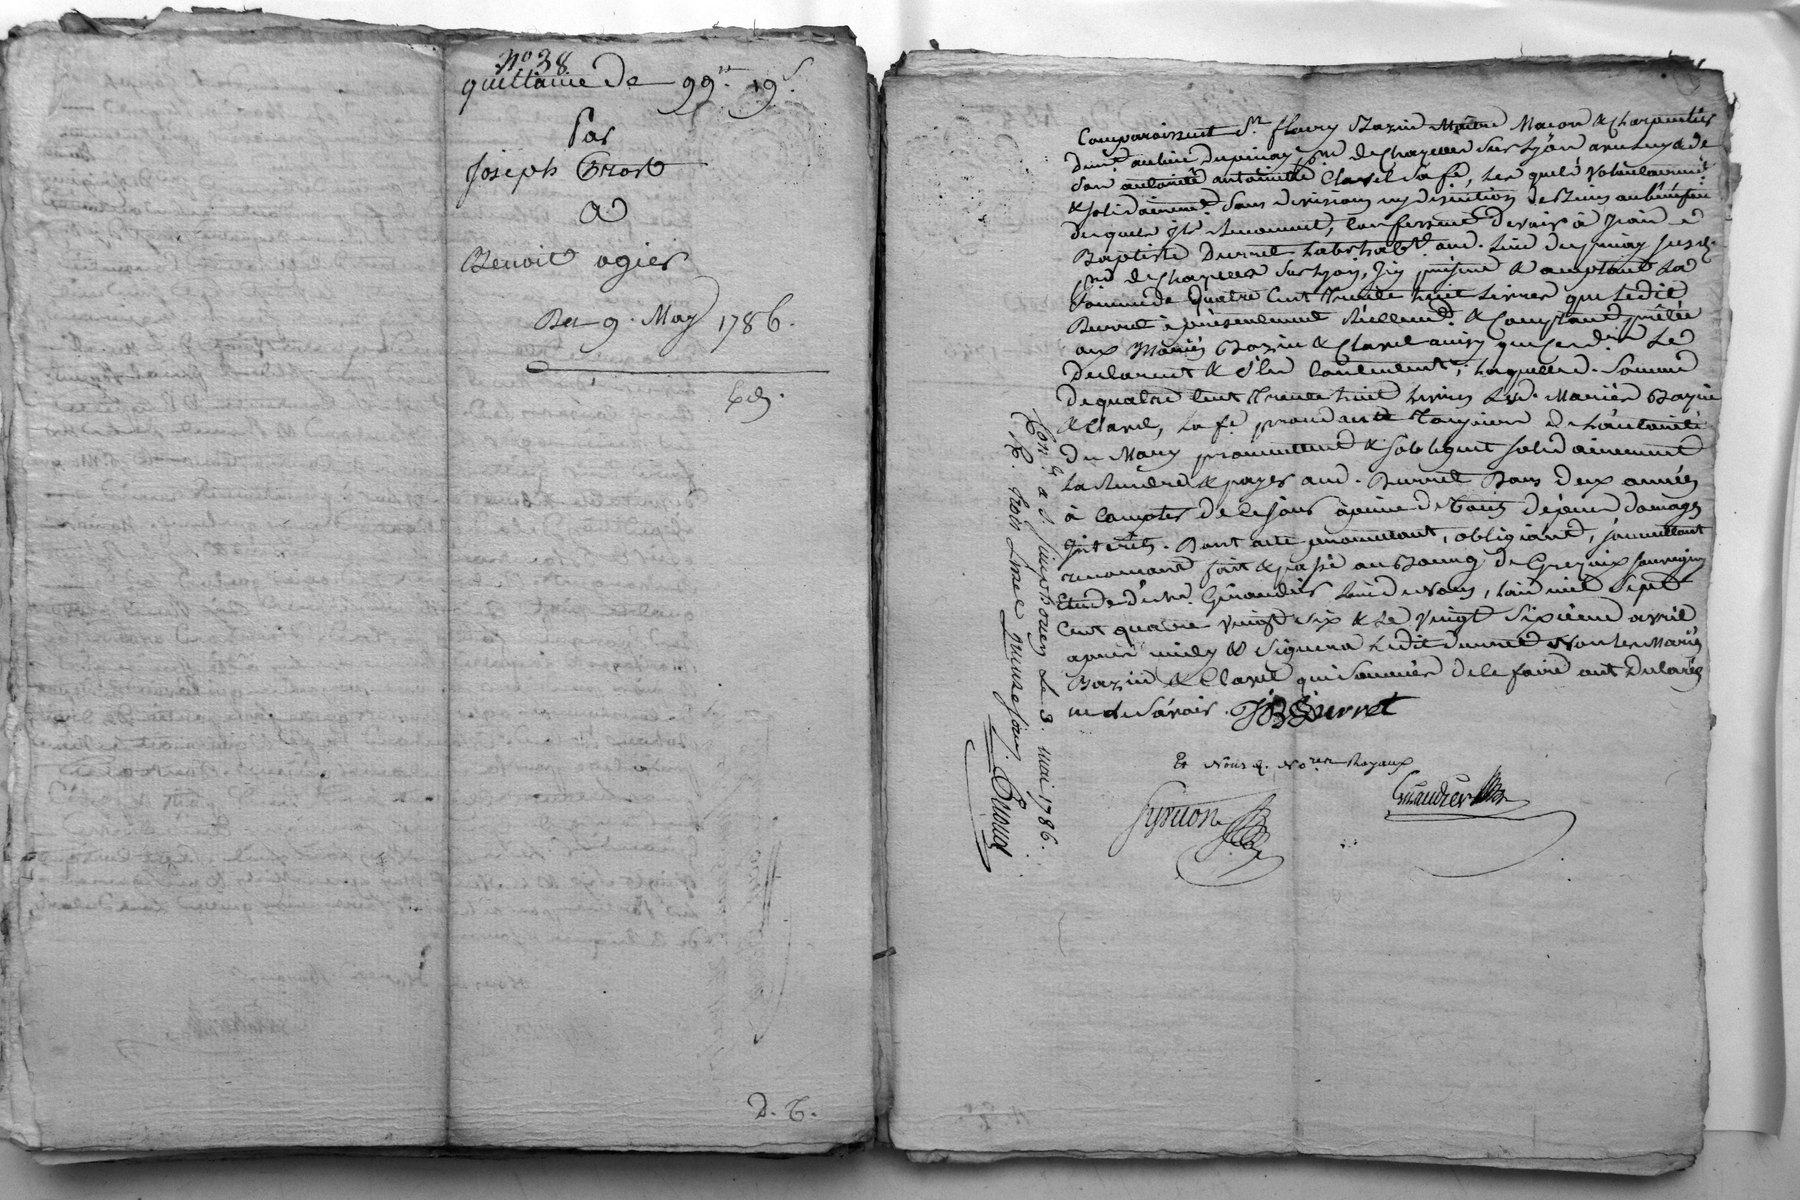 No 38
quittance de 99tt 19s.
Par
Joseph
A
Benoit ogier
Du 9. May 1786.
Ed.
D. C.
Comparoissent Sr. fleury Bazin Maitre Macon & Charpentier
demt. au lieu Dupinay psse. de Chazelles sur Lyon avec luy & de
Son authorité antoinette Clavel Sa fe, les quels volontairement
& solidairement Sans division ny discution de Biens au bénéfice
desquels Ils Renoncent, Confessent devoir à Jean
Baptiste Durret habt. aud. Lieu Dupinay susd.
psse. de Chazelles sur Lyon, Icy présent & acceptant La
Somme de Quatre Cent Trente huit Livres que Ledit
Durret a présentement Réellemt. & Comptant prêtée
aux Mariés Bazin & Clavel ainsy que Les
Declarent & s'En Contentent; Laquelle Somme
de quatre Cent Trente huit Livres Lesd. Mariés Bazin
& Clavel, La fe. procedante Toujours de L'autorité
du Mary promettent & s'obligent solidairement
La Rendre & payer aud. Durret Dans Deux années
à Compter de Ce jour à peine de Tous Dépens Domages
Intérêts. Dont acte promettant, obligeant, soumettant
renonçant fait & passé au Bourg de Grezieux
Etude de Me. Giraudier L'un de Nous, L'an mil Sept
Cent quatre vingt six & Le vingt Sixième avril
après midy & Signera Ledit Durret Non les Mariés
Bazin & Clavel qui Sommés de le faire ont Declarés
ne le Savoir. JB Durret
Et Nous Nores. Royaux
Giraudier
Con. à S. Simphorien Le 3. mai 1786.
R. trois Livres quinze sous.